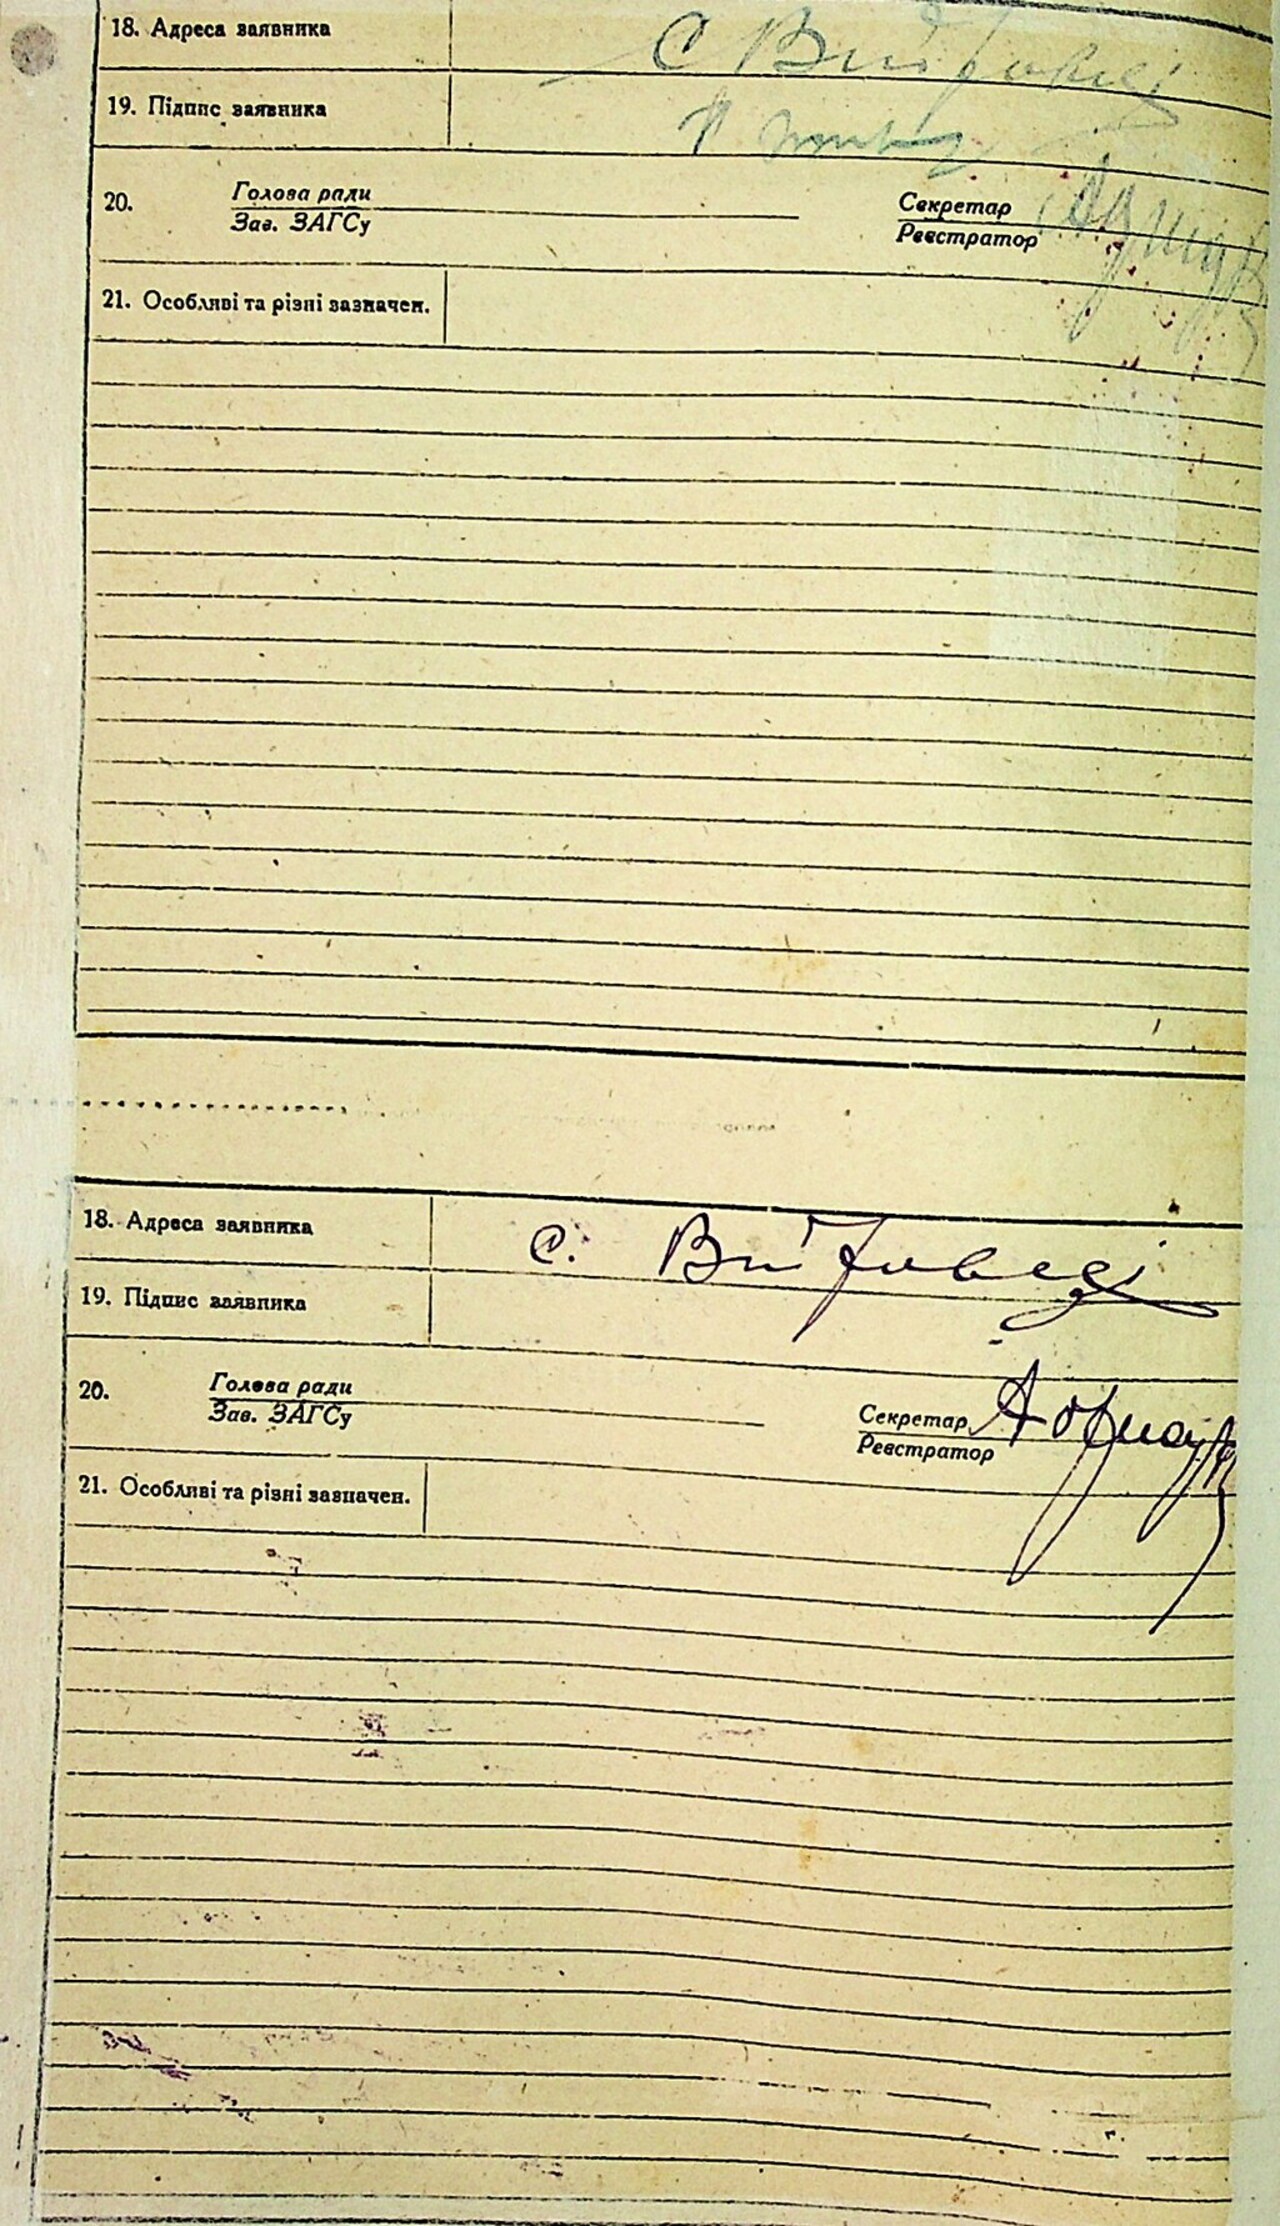 18. Адреса заявника С Війтовці
19. Підпис заявника
20. Голова ради Секретар
Зав. ЗАГСу Реєстратор
21. Особливі та різні зазначен.
18. Адреса заявника с. Війтовеці
19. Підпис заявника
20. Голова ради Секретар
Зав. ЗАГСу Реєстратор
21. Особливі та різні зазначен.